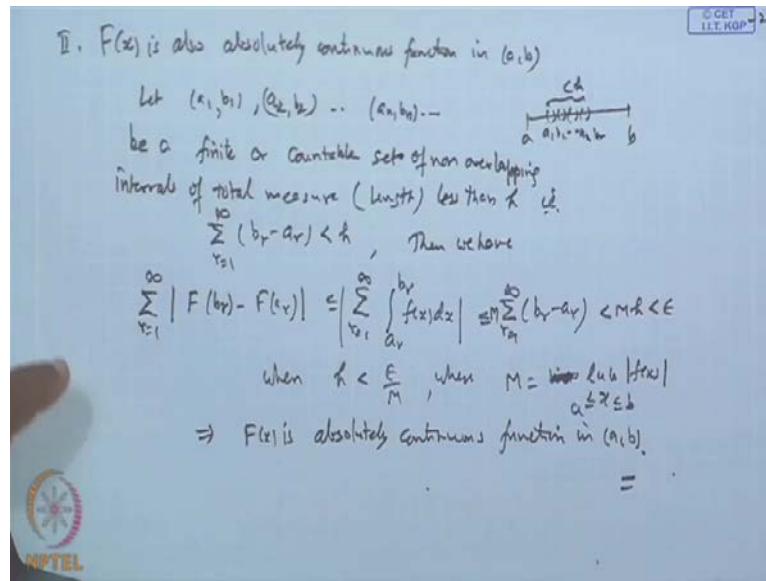 © CET
I.I.T. KGP
II. F(x) is also absolutely continuous function in (a,b)
Let (a₁,b₁), (a₂,b₂) .. (aₙ,bₙ)...
a b
be a finite or countable sets of non overlapping
intervals of total measure (length) less than h ie.
∞ Σ r=1 (bᵣ-aᵣ) < h , Then we have
∞ Σ r=1 | F(bᵣ) - F(aᵣ) | ≤ | ∞ Σ r=1 ∫ aᵣ bᵣ f(x)dx | ≤ M ∞ Σ r=1 (bᵣ-aᵣ) < Mh < ε
when h < ε/M , when M = lub |f(x)|
a ≤ x ≤ b
⇒ F(x) is absolutely continuous function in (a,b).
NPTEL